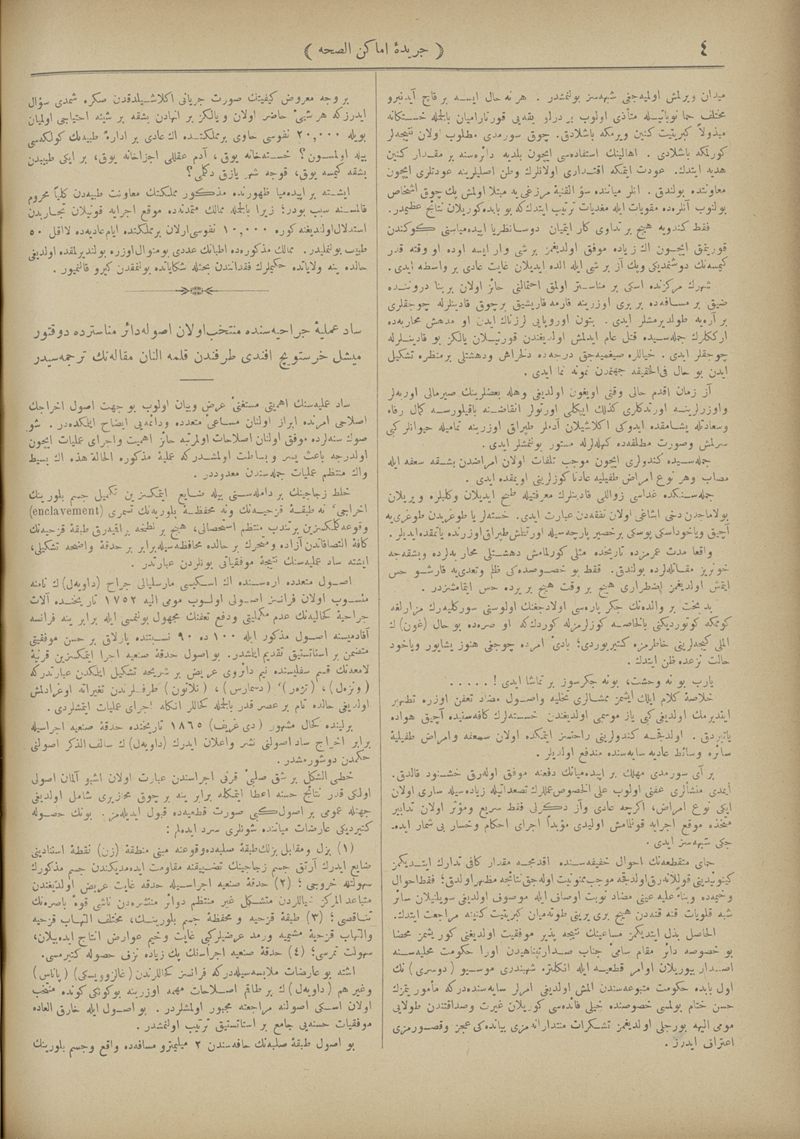 ٤
﴿ جريدۀ اماكن الصحه ﴾
ميدان ويرلمش اوليه‌جغى شبهه‌سز بولنمشدر . هر نه حال ايسه بر قاچ آيدنبرو
مختلف حما نوباتيله متأذى اولوب بر درلو يقه‌يى قورتارميان بالجمله خسته‌كانه
مبذولاً كبريتيت كنين ويرمكه باشلادق. چوق سورمدى مطلوب اولان نتيجه‌لر
كورلمكه باشلادى . اهالينك استفاده‌سى ايچون بلديه دائره‌سنه بر مقدار كنين
هديه ايتدك. عودت ايتمكه اقتدارى اولانلرك وطن اصليلرينه عودتلرى ايچون
معاونتده بولندق . انلر ميانده سؤ القنيه مرزغى‌يه مبتلا اولمش پك چوق اشخاص
بولنوب آنلره‌ده مقويات ايله مغديات ترتيب ايتدك‌كه بو بابده كوريلان نتائج عظيمدر.
فقط كندويه هيچ بر تداوى كار ايتميان دوسانطريا اپيده‌مياسنى كوكندن
قوريتمق ايچون اك زياده موفق اولديغمز بر شى وار ايسه اوده او وقته قدر
كيمسه‌نك دوشنمديكى وپك از بر شى ايله الده ايديلان غايت عادى بر واسطه ايدى.
شهرك مركزنده اسكى بر مناستر اولمق احتمالنى حائز اولان بر بنا دروننده
ضيق بر مسافه‌ده بر برى اوزرينه قارمه قاريشيق بر چوق قادينلرله چوجقلرى
بر آره‌يه طولديرمشلر ايدى . بتون اوروپايى لرزناك ايدن او مدهش محاربه‌ده
ارككلرك جمله‌سيده قتل عام ايدلمش اولديغندن قورتيلان يالكز بو قادينلرله
چوجقلر ايدى . خيالله صيغميه‌جق درجه‌ده دلخراش ودهشتلى بر منظره تشكيل
ايدن بو حال فى‌الحقيقه جهنمدن نمونه نما ايدى .
آز زمان اقدم حالى وقتى اويغون اولديغى وهله بعضلرينك صيرمالى اوربه‌لر
واوزرلرينه اورتدكلرى كذلك ايپكلى اورتولر انقاضنه باقيلورسه كمال رفاه
وسعادتله يشامقده ايدوكى اكلاشيلان آدملر طپراق اوزرينه تماميله حيوانلر كبى
سرلمش وصورت مطلقه‌ده كهله‌لرله مستور بولنمشلر ايدى .
جمله‌سيده كندولرى ايچون موجب تلفات اولان امراضدن بشقه سعفه ايله
مصاب وهر نوع امراض طفيليه عادتا كوزلرينى اويقده ايدى .
جمله‌سنك غداسى زواللى قادينلرك معرفتيله طبخ ايديلان وكليلره ويريلان
بولاماجدن دخى اشاغى اولان نفقه‌دن عبارت ايدى. خسته‌لر يا طوغريدن طوغرى‌يه
آچيق وياخود اسكى پوسكى بر حصير پارچه‌سيله اورتلمش طپراق اوزرنده ياتمقده ايديلر.
واقعا مدت عمرمزده تاريخده مثلى كورلمامش دهشتلى محاربه‌لرده وبشقه‌جه
خونريز مقاتله‌لرده بولندق. فقط بو خصوصده‌كى ظلم وتعدى‌يه قارشو حس
ايتمش اولديغمز اضطرارى هيچ بر وقت هيچ بر يرده حس ايتمامشزدر.
بد بخت بر والده‌نك جكر پاره‌سى اولادجغك اولوسنى سوركليه‌رك مزارلغه
كومكه كوتورديكنى بالخاصه كوزلرمزله كوردك‌كه او صره‌ده بو حال (غون) ك
اللى كيجه‌لرينى خاطرمزه كتيريوردى؛ بادئ امرده چوجغى هنوز يشايور وياخود
حالت نزعده ظن ايتدك .
يارب بو نه وحشت، بو نه جكرسوز بر تماشا ايدى ! . . . . .
خلاصۀ كلام ايلك ايشمز ممتازلرى تخليه واصول مضاد تعفن اوزره تطهير
ايتديرمك اولديغى كبى ياز موسمى اولديغندن خسته‌لرك كافه‌سنيده آچيق هواده
ياتيردق . اولدقجه كندولرينى راحتسز ايتمكده اولان سعفه وامراض طفيليۀ
سائره وسائط عاديه سايه‌سنده مندفع اولديلر .
بر آى سورمدى مهلك بر اپيده‌ميانك دفعنه موفق اوله‌رق خشنود قالدق.
ايمدى منشألرى عفنى اولوب على الخصوص عمللرك تصعداتيله زياده‌سيله سارى اولان
ايكى نوع امراض، اكرچه عادى وآز دكرلى فقط سريع ومؤثر اولان تدابير
متخذه موقع اجرايه قونلمامش اوليدى مؤبداً اجراى احكام وخسار بى شمار ايده‌
جكى شبهه‌سز ايدى .
حماى متقطعه‌نك احوال خفيفه‌سنده اقدمجه مقدار كافى تدارك ايتديكمز
كنيوتيدينى قوللانه‌رق اولدقجه موجب ممنونيت اوله‌جق نتائجه مظهر اولدق؛ فقط احوال
وخيمه‌ده وبناءً عليه عينى مضاد نوبت اوصافى ايله موصوف اولدينى سويلنيلان سائر
شبه قلويات قنه قندن هيچ برى يرينى طوته‌ميان كبريتيت كنينه مراجعت ايتدك.
الحاصل بذل ايتديكمز مساعينك نتيجه پذير موفقيت اولديغى كورشمز محضا
بو خصوصه دائر مقام سامئ جناب صدارتپناهيدن اورا حكومت محليه‌سنه
اصدار بيوريلان اوامر قطعيه ايله انكليز مهندسى موسيو (دوسرى) نك
اول بابده حكومت متبوعه‌سندن المش اولدينى امرلر سايه‌سنده‌دركه مأموريتمزك
حسن ختام بولمسى خصوصنده خيلى فائده‌سى كوريلان غيرت وصداقتندن طولايى
مومى اليهه بورجلى اولديغمز تشكرات متندارانه‌مزى بيانده‌كى عجز وقصورمزى
اعتراف ايدرز .
بر وجه معروض كيفيتك صورت جريانى اكلاشيلدقدن صكره شمدى سؤال
ايدرزكه هر شيئ حاضر اولان ويالكز بر انهادن بشقه بر شيئه احتياجى اولميان
بويله ٢٠,٠٠٠ نفوسى حاوى بر مملكتده اك عادى بر ادارۀ طبيه‌نك كولكه‌سى
بيله اولمسون؟ خسته‌خانه يوق، آدم عقللى اجزاخانه يوق، بر ايكى طبيبدن
بشقه كيمسه يوق، قوجه شهر يازق دكلمى؟
ايشته بر اپيده‌ميا ظهورنده مذكور مملكتك معاونت طبيه‌دن كلياً محروم
قالمسنه سبب بودر؛ زيرا بالجمله ممالك متمدنه‌ده موقع اجرايه قونيلان تجاربدن
استدلال اولنديغنه كوره ١٠,٠٠٠ نفوسى اولان بر مملكتده ايام عاديه‌ده لااقل ٥٠
طبيب بولنمليدر. ممالك مذكوره‌ده اطبانك عددى بو منوال اوزره بولنديرلمقده اولدينى
حالده ينه ولاياتده حكيملرك فقدانندن بحثله شكاياتده بولنمقدن كيرو قالنميور .
ساد عمليۀ جراحيه‌سنده منتخب اولان اصوله دائر مناسترده دوقتور
ميشل خرستويچ افندى طرفندن قلمه النان مقاله‌نك ترجمه‌سيدر
ساد عمليه‌سنك اهميتى مستغنئ عرض وبيان اولوب بو جهت اصول اخراجك
اصلاحى امرنده ابراز اولنان مساعئ متعدده ودائمه‌يى ايضاح ايلمكده‌در . شو
صوك سنه‌لرده موفق اولنان اصلاحات اولمرتبه حائز اهميت واجراى عمليات ايچون
اولدرجه باعث يسر وبساطت اولمشدركه عمليۀ مذكوره الحالة هذه اك بسيط
واك منتظم عمليات جمله‌سندن معدوددر .
خلط زجاجينك بر دامله‌سنى بيله ضايع ايتمكسزين تكميل جسم بلورينك
اخراجى؛ نه طبقۀ قزحيه‌نك ونه محفظۀ بلوريه‌نك تسمرى (enclavement)
وقوعه كلمكسزين بر ندبت منتظم استحصالى، هيچ بر نطيفه براقميه‌رق طبقۀ قزحيه‌نك
كافۀ التصاقاتدن آزاده ومتحرك بر حالده محافظه‌سيله برابر بر حدقۀ واضحه تشكيلى،
ايشته ساد عمليه‌سنك نتيجۀ موفقياتى بونلردن عبارتدر .
اصول متعدده اره‌سنده اك اسكيسى مارسليالى جراح (داويه‌ل) ك نامنه
منسوب اولان فرانسز اصولى اولوب مومى اليه ١٧٥٢ تاريخنده آلات
جراحيۀ كحاليه‌نك عدم مكمليتى ودفع تعفنك مجهول بولنمسى ايله برابر ينه فرانسه
آقاده‌ميسنه اصول مذكور ايله ١٠٠ ده ٩٠ نسبتنده پارلاق بر حسن موفقيتى
متضمن بر استاتستيق تقديم ايلمشدر. بو اصول حدقۀ صنعيه اجرا ايتمكسزين قرنيۀ
لامعه‌نك قسم سفليسنده نيم دائروى عريض بر شريحه تشكيل ايلمكدن عبارتدركه
(ونزه‌ل)، (تژه‌ر)، (ديمارس) ، (نلاتون) طرفلرندن تغيراته اوغرادلمش
اولدينى حالده تام بر عصر قدر بالجمله كحاللر انكله اجراى عمليات ايتمشلردى .
برلينده كحال مشهور (دى غريف) ١٨٦٥ تاريخنده حدقۀ صنعيه اجراسيله
برابر اخراج ساد اصولنى نشر واعلان ايدرك (داويه‌ل) ك سالف الذكر اصولنى
حكمدن دوشورمشدر .
خطى الشكل بر شق صلبئ قزحى اجراسندن عبارت اولان اشبو آلمان اصولى
اولكى قدر نتائج حسنه اعطا ايتمكله برابر ينه بر چوق محازيرى شامل اولدينى
جهتله عمومى بر اصول كبى صورت قطعيه‌ده قبول ايديله‌مز. بونك حصوله
كتيرديكى عارضات ميانده شونلرى سرد ايده‌لم :
(١) بزل ومقابل بزلك طبقۀ صلبه‌ده وقوعنه مبنى منطقۀ (زن) نقطۀ استنادينى
ضايع ايدرك آرتق جسم زجاجينك تضييقنه مقاومت ايده‌مديكندن جسم مذكورك
سهولتله خروجى ؛ (٢) حدقۀ صنعيه اجراسيله حدقه غايت عريض اولديغندن
متباعد المركز ضيالردن متشكل غير منتظم دوائر منتشره‌دن ناشى قوۀ باصره‌نك
تناقصى ؛ (٣) طبقۀ قزحيه ومحفظۀ جسم بلورينك، مختلف التهاب قزحيه
والتهاب قزحيۀ مشيميه ورمد عرضيلر كبى غايت وخيم عوارض انتاج ايده‌بيلان،
سهولت تمرسى؛ (٤) حدقۀ صنعيه اجراسنك پك زياده نزف حصوله كتيرمسى.
اشته بو عارضات ملابسه‌سيله‌دركه فرانسز كحاللرندن (غالزووسكى) (پاناس)
وغيرهم (داويه‌ل) ك بر طاقم اصلاحات مهمه اوزرينه بوكونكى كونده منتخب
اولان اسكى اصولنه مراجعته مجبور اولمشلردر . بو اصول ايله خارق العاده
موفقيات حسنه‌يى جامع بر استاتستيق ترتيب اولنمشدر .
بو اصول طبقۀ صلبه‌نك حافه‌سندن ٢ ميليمترو مسافه‌ده واقع وجسم بلورينك